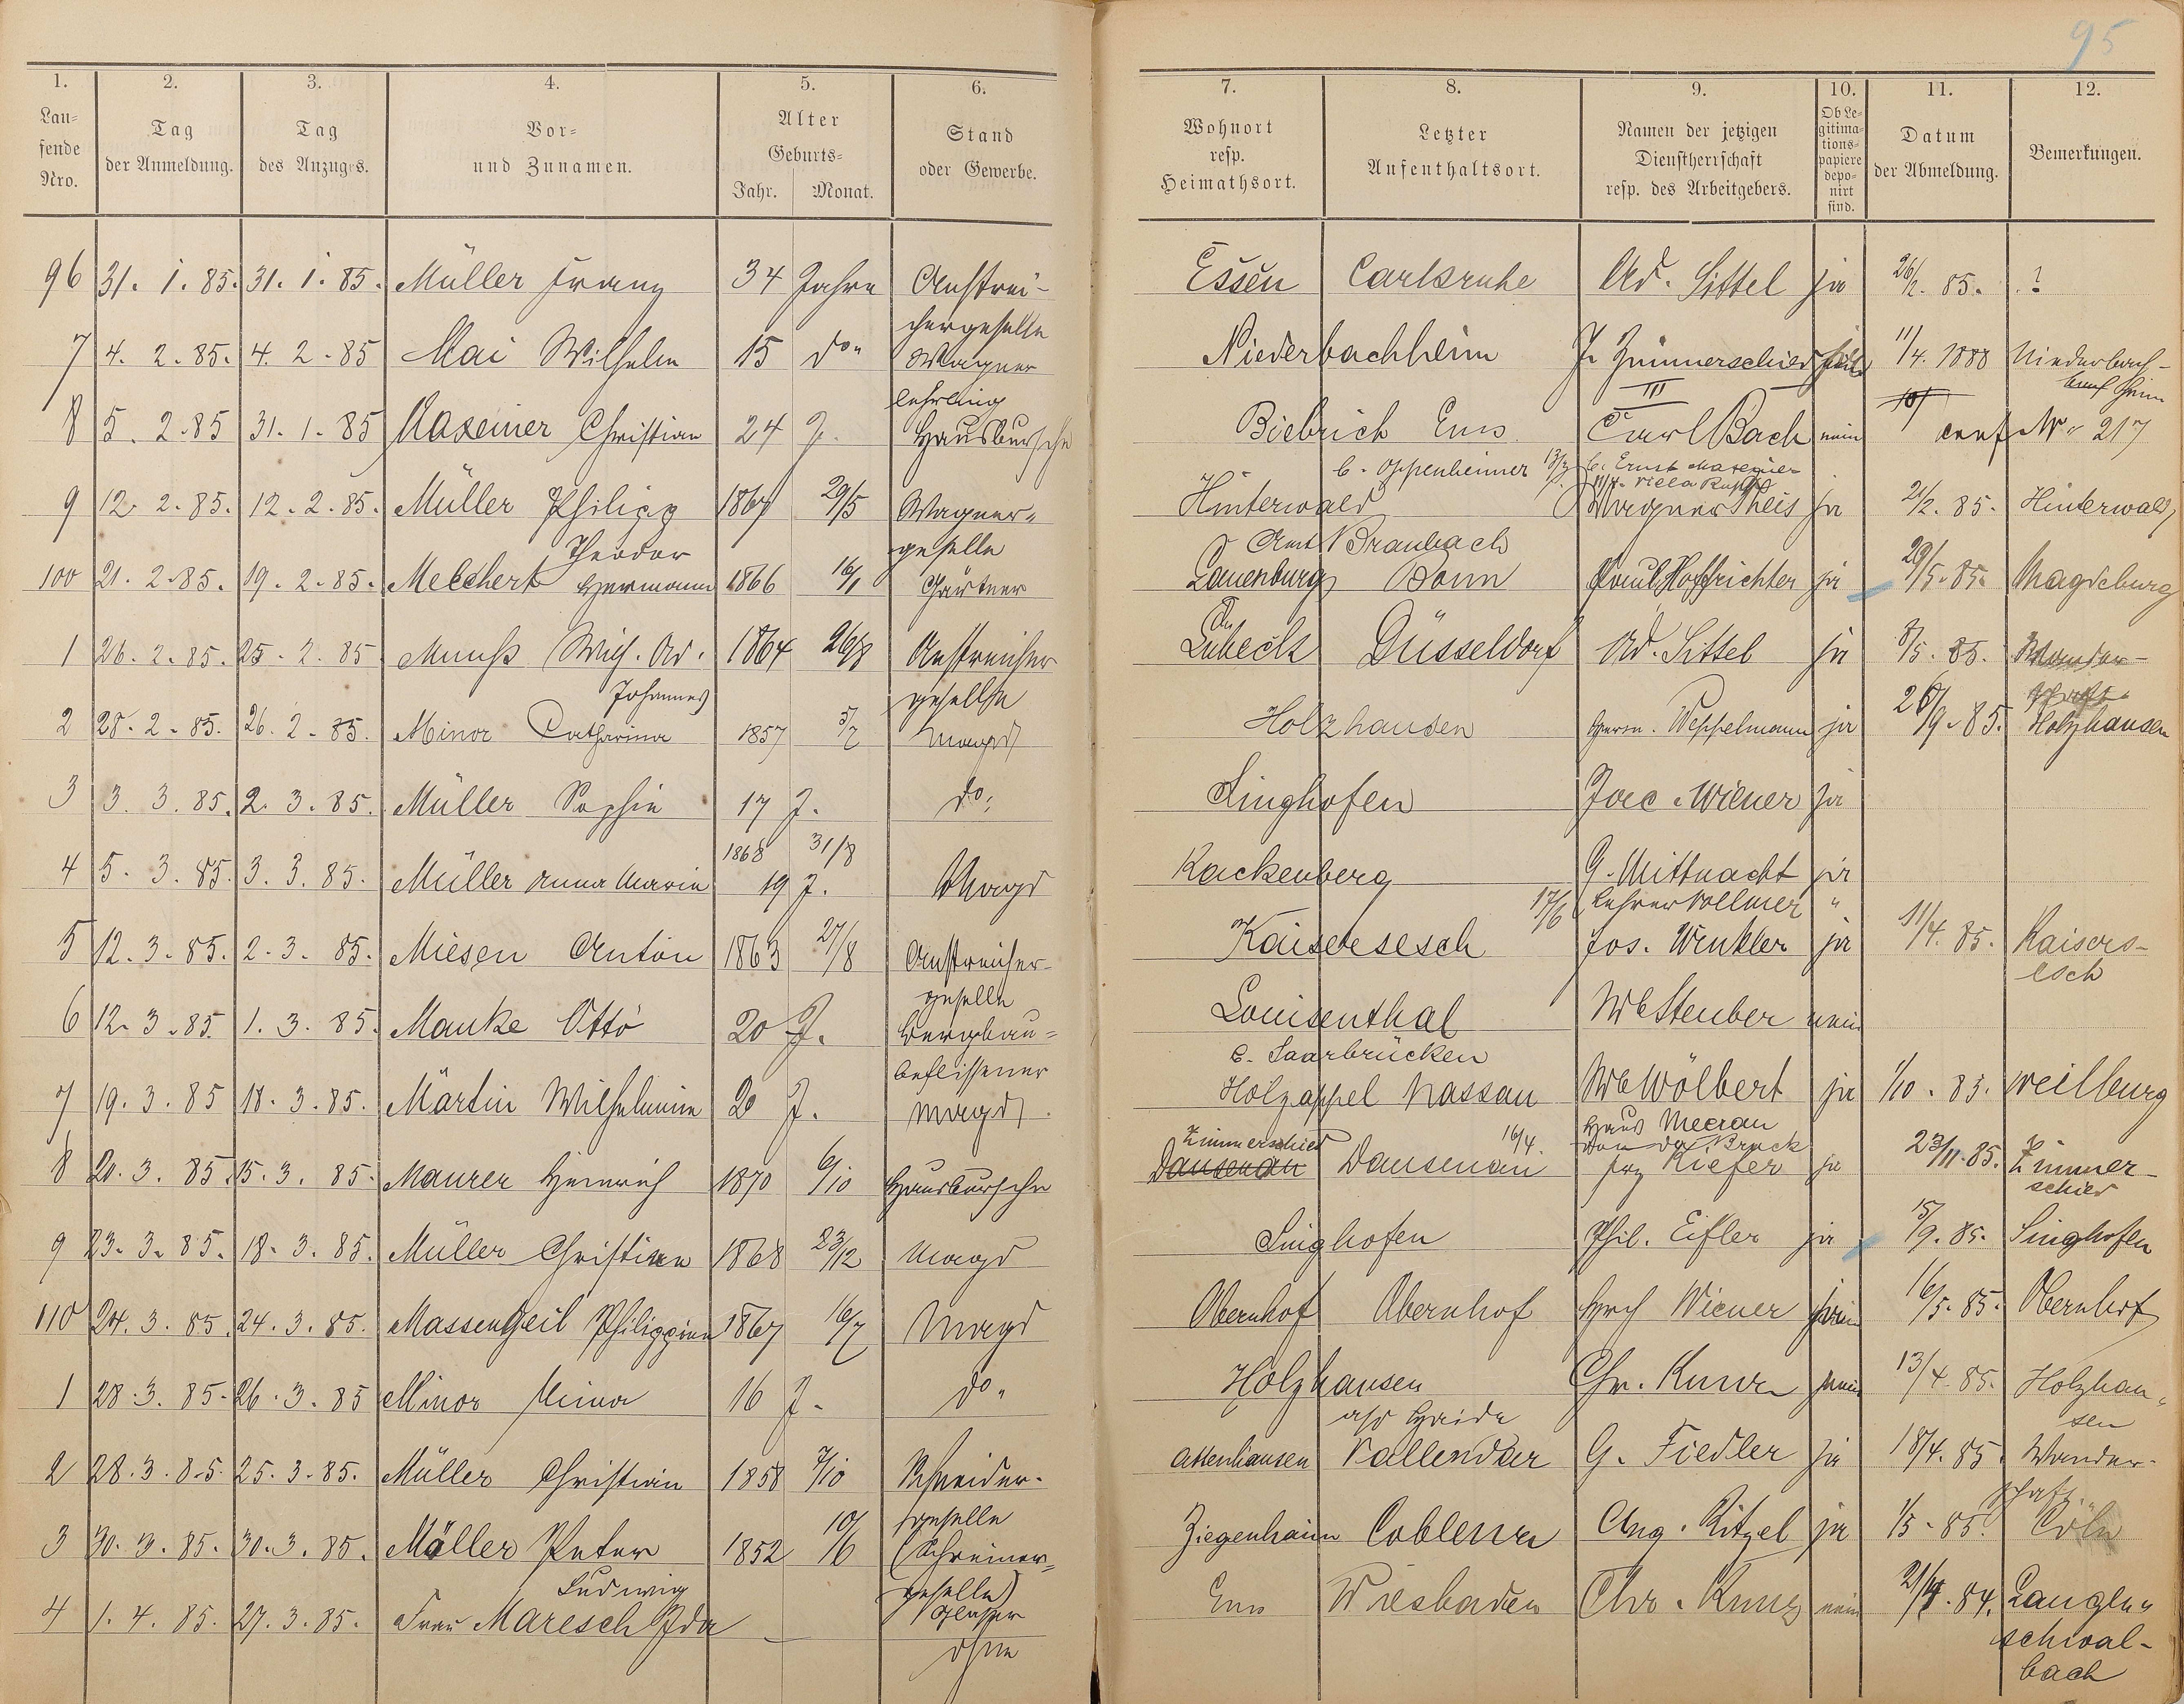 95
1. 2. 3. 4. 5. 6. 7. 8. 9. 10. 11. 12.
Laufende Nro. | Tag der Anmeldung. | Tag des Anzuges. | Vor- und Zunamen. | Alter Geburts- Jahr. Monat. | Stand oder Gewerbe. | Wohnort resp. Heimathsort. | Letzter Aufenthaltsort. | Namen der jetzigen Dienstherrschaft resp. des Arbeitgebers. | Ob Legitimationspapiere deponirt sind. | Datum der Abmeldung. | Bemerkungen.
96 | 31. 1. 85. | 31. 1. 85. | Müller Franz | 34 Jahre | Anstreichergeselle | Essen | Carlsruhe | Ad. Sittel | ja | 26/2. 85. | ?
7 | 4. 2. 85. | 4. 2. 85 | Mai Wilhelm | 15 do | Wagnerlehrling | Niederbachheim | J. Zimmerschied III | 11/4. 1888 | Niederbachheim
8 | 5. 2. 85 | 31. 1. 85 | Maxeiner Christian | 24 J. | Hausbursche | Biebrich | Ems | Carl Bach | nein | conf Nr. 217
b. Oppenheimer 13/3 b. Ernst Maxeiner
Villa
9 | 12. 2. 85. | 12. 2. 85. | Müller Philipp | 1867 29/5 | Wagnergeselle | Hinterwald Amt Braubach | Wagner Theis | ja | 21/2. 85. | Hinterwald
100 | 21. 2. 85. | 19. 2. 85. | Melchert Theodor Hermann | 1866 16/1 | Gärtner | Lauenburg | Bonn | Hoffrichter | ja | 29/5. 85. | Magdeburg
1 | 26. 2. 85. | 25. 2. 85 | Muuß Wilh. Ad. Johannes | 1864 26/8 | Anstreichergeselle | Lübeck | Düsseldorf | Ad. Sittel | ja | 8/5. 85. | Wanderschaft
2 | 28. 2. 85. | 26. 2. 85. | Minor Catharina | 1857 5/7 | Magd | Holzhausen | Herm. Weppelmann | ja | 26/9. 85. | Holzhausen
3 | 3. 3. 85. | 2. 3. 85. | Müller Sophie | 17 J. | do. | Singhofen | Jac. Wiener | ja
4 | 5. 3. 85. | 3. 3. 85. | Müller Anna Maria | 1868 31/8 19 J. | Magd | Kackenberg | G. Mittnacht | ja
17/6 Lehrer Vollmer "
5 | 12. 3. 85. | 2. 3. 85. | Miesen Anton | 1863 27/8 | Anstreichergeselle | Kaisersesch | Jos. Winkler | ja | 11/4. 85. | Kaisersesch
6 | 12. 3. 85. | 1. 3. 85. | Manke Otto | 20 J. | Bergbaubeflissener | Louisenthal b. Saarbrücken | Wb Stenber | nein
7 | 19. 3. 85 | 18. 3. 85. | Martin Wilhelmine | 20 J. | Magd | Holzappel | Nassau | Wb Wölbert | ja | 1/10. 85. | Weilburg
16/4. Haus Meeran
8 | 20. 3. 85. | 15. 3. 85. | Maurer Heinrich | 1870 6/10 | Hausbursche | Dausenau Zimmerschied | Dausenau | Kiefer | ja | 23/11. 85. | Zimmerschied
9 | 23. 3. 85. | 18. 3. 85. | Müller Christiane | 1868 23/12 | Magd | Singhofen | Phil. Eifler | ja | 15/9. 85. | Singhofen
110 | 24. 3. 85. | 24. 3. 85. | Massengeil Philippine | 1867 16/7 | Magd | Obernhof | Obernhof | Wiener | 16/5. 85. | Obernhof
1 | 28. 3. 85. | 26. 3. 85 | Minor Mina | 16 J. | do. | Holzhausen a/d Haide | Chr. Kunz | nein | 13/4. 85. | Holzhausen
2 | 28. 3. 85. | 25. 3. 85. | Müller Christian | 1858 7/10 | Schneidergeselle | Attenhausen | Vallendar | G. Fiedler | ja | 18/4. 85. | Wanderschaft
3 | 30. 3. 85. | 30. 3. 85. | Möller Peter Ludwig | 1852 10/6 | (Schreinergeselle) Glaser | Ziegenhain | Coblenz | Aug. Ritzel | ja | 1/5. 85. | Cöln
4 | 1. 4. 85. | 27. 3. 85. | Frau Maresch Ida | — | ohne | Ems | Wiesbaden | Chr. Kunz | nein | 84. | Langenschwalbach